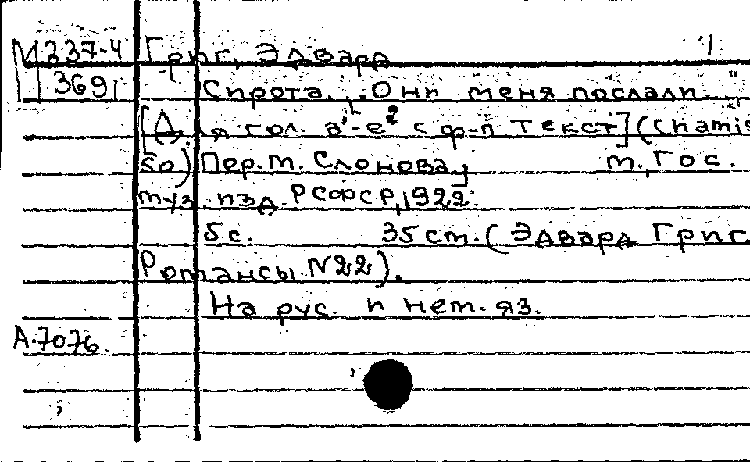 М 337-4 Григ, Эдвард
369 Сирота. „Они меня послали..."
[Для гол. a'-e² с ф-п Текст] (Chamis
so) Пер. М. Слонова, М., Гос.
муз. изд. РСФСР, 1922.
5 с. 35 см. (Эдвард Григ
Романсы N22).
На рус. и нем. яз.
А.7076.